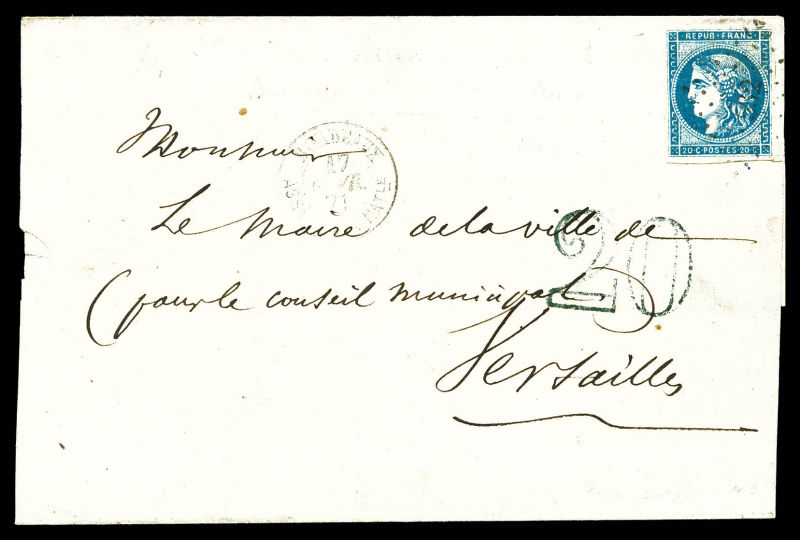 REPUB·FRANC·
20·C·POSTES·20·C
17
71
Monsieur
Le Maire de la ville de
(pour le conseil municipal)
20
Versailles